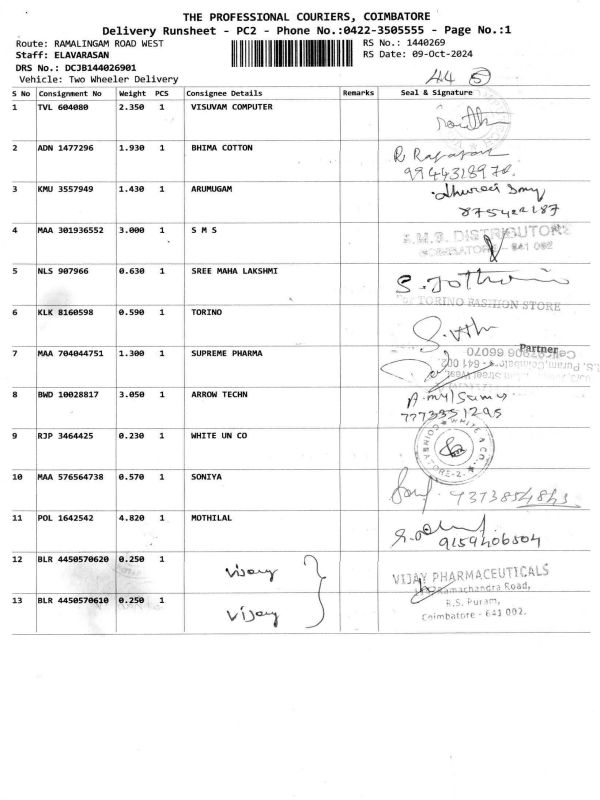 THE PROFESSIONAL COURIERS, COIMBATORE
Delivery Runsheet - PC2 - Phone No.:0422-3505555 - Page No.:1
Route: RAMALINGAM ROAD WEST RS No.: 1440269
Staff: ELAVARASAN RS Date: 09-Oct-2024
DRS No.: DCJB144026901
Vehicle: Two Wheeler Delivery 44 5
S No Consignment No Weight PCS Consignee Details Remarks Seal & Signature
1 TVL 604080 2.350 1 VISUVAM COMPUTER
2 ADN 1477296 1.930 1 BHIMA COTTON
3 KMU 3557949 1.430 1 ARUMUGAM
4 MAA 301936552 3.000 1 S M S S.M.S. DISTRIBUTORS
COIMBATORE - 641 002
5 NLS 907966 0.630 1 SREE MAHA LAKSHMI
For TORINO FASHION STORE
6 KLK 8160598 0.590 1 TORINO
Partner
7 MAA 704044751 1.300 1 SUPREME PHARMA
8 BWD 10028817 3.050 1 ARROW TECHN
7773351295
9 RJP 3464425 0.230 1 WHITE UN CO WHITE & CO. COIMBATORE-2.
10 MAA 576564738 0.570 1 SONIYA
11 POL 1642542 4.820 1 MOTHILAL
9159406504
12 BLR 4450570620 0.250 1 Vijay VIJAY PHARMACEUTICALS
Ramachandra Road,
13 BLR 4450570610 0.250 1 Vijay R.S. Puram,
Coimbatore - 641 002.